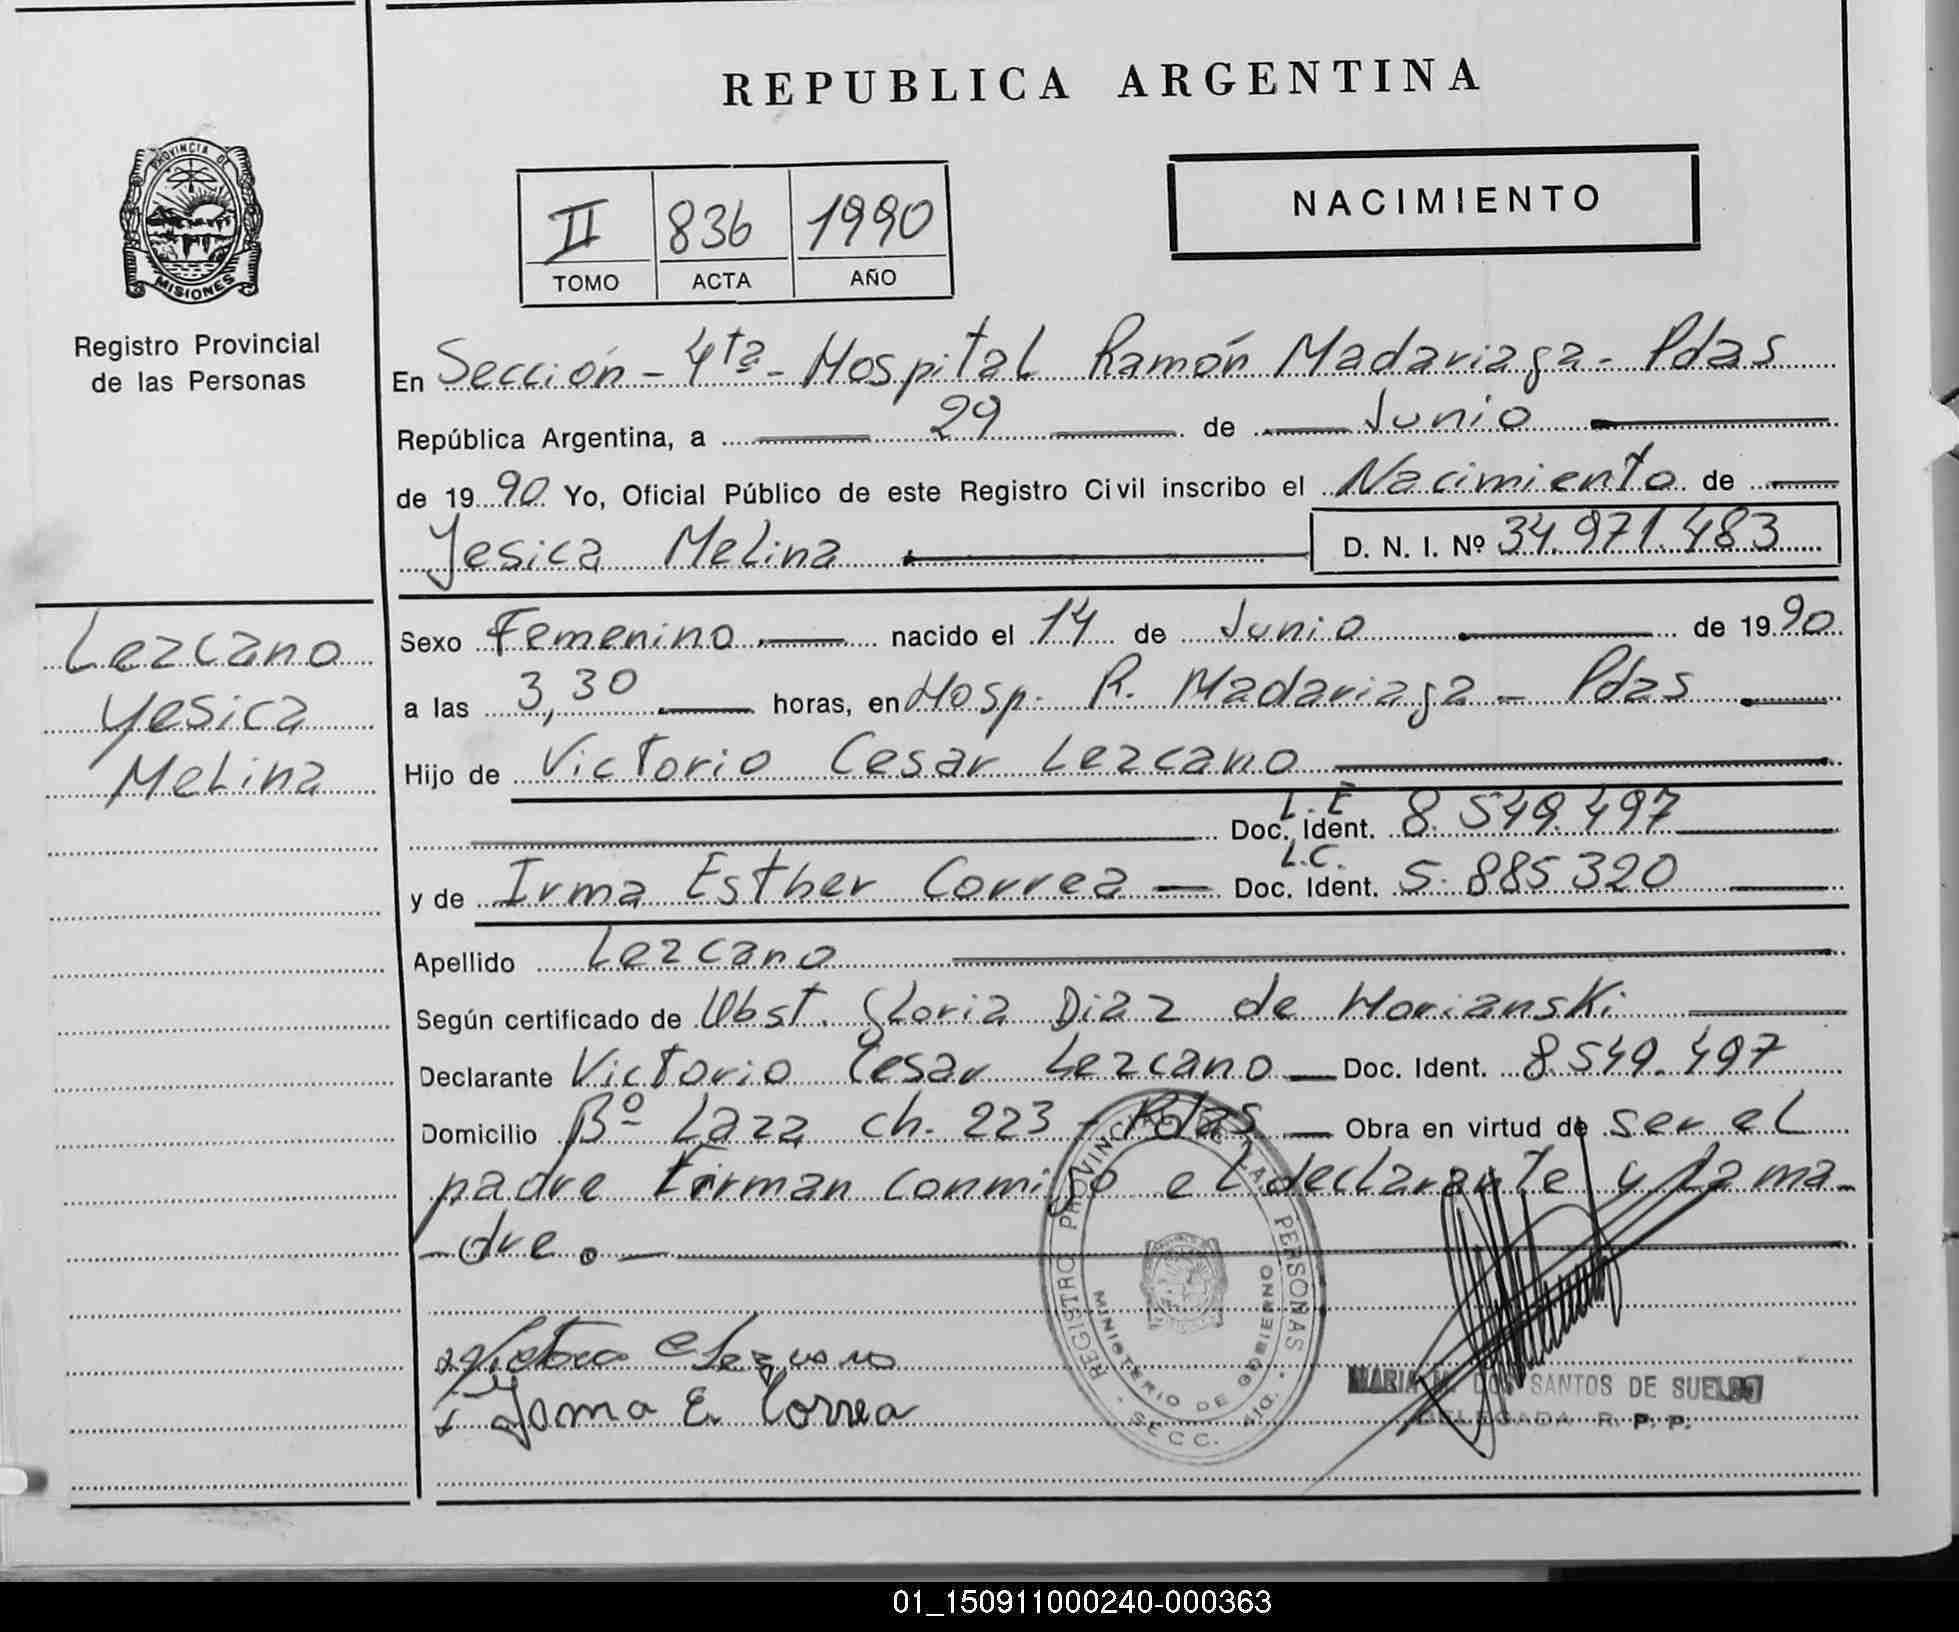 REPUBLICA ARGENTINA
PROVINCIA DE
MISIONES
Registro Provincial
de las Personas
NACIMIENTO
II 836 1990
TOMO ACTA AÑO
En Sección - 4ta - Hospital Ramón Madariaga - Pdas
República Argentina, a 29 de Junio
de 1990 Yo, Oficial Público de este Registro Civil inscribo el Nacimiento de
Yesica Melina D. N. I. Nº 34.971.483
Lezcano
Yesica
Melina
Sexo Femenino nacido el 14 de Junio de 1990
a las 3,30 horas, en Hosp. R. Madariaga - Pdas
Hijo de Victorio Cesar Lezcano
L.E
Doc. Ident. 8.549.497
L.C.
y de Irma Esther Correa - Doc. Ident. 5.885320
Apellido Lezcano
Según certificado de Obst. Gloria Diaz de Morianski
Declarante Victorio Cesar Lezcano - Doc. Ident. 8.549.497
Domicilio Bº Laza ch. 223 - Pdas - Obra en virtud de ser el
padre Firman conmigo el declarante y la ma-
-dre.
REGISTRO PROVINCIAL DE LAS PERSONAS
MINISTERIO DE GOBIERNO
SECC. 4ta.
Irma E. Correa
MARIA M. DOS SANTOS DE SUELDO
DELEGADA R. P. P.
01_150911000240-000363